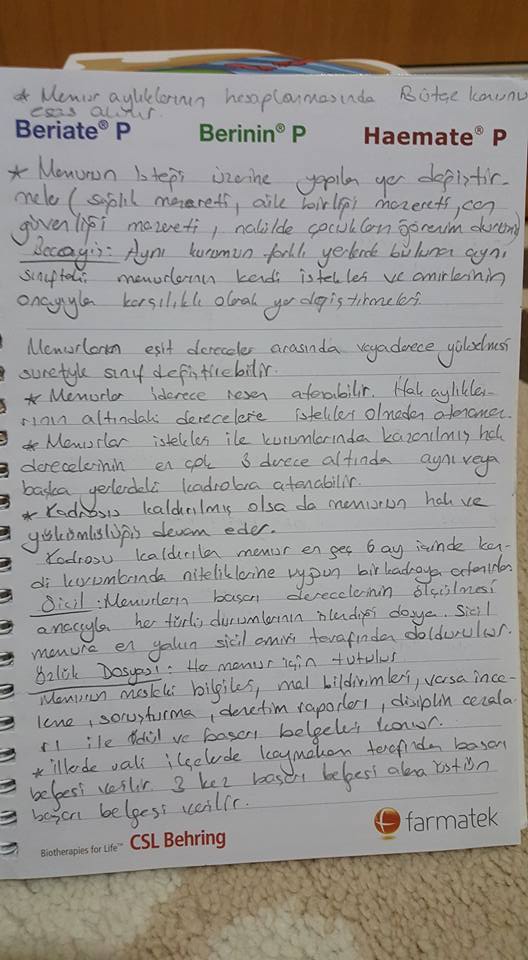 * Memur aylıklarının hesaplanmasında Bütçe kanunu
esas alınır.
Beriate® P Berinin® P Haemate® P
* Memurun isteği üzerine yapılan yer değiştir-
meler ( sağlık mazereti, aile birliği mazereti, can
güvenliği mazereti, nakilde çocukların öğrenim durumu)
Becayiş: Aynı kurumun farklı yerlerde bulunan aynı
sınıftaki memurlarının kendi istekleri ve amirlerinin
onayıyla karşılıklı olarak yer değiştirmeleri.
Memurların eşit dereceler arasında veya derece yükselmesi
suretiyle sınıf değiştirebilir.
* Memurlar derece resen atanabilir. Hak aylıkla-
rının altındaki derecelere istekleri olmadan atanamaz.
* Memurlar istekleri ile kurumlarında kazanılmış hak
derecelerinin en çok 3 derece altında aynı veya
başka yerlerdeki kadrolara atanabilir.
* Kadrosu kaldırılmış olsa da memurun hak ve
yükümlülüğü devam eder.
Kadrosu kaldırılan memur en geç 6 ay içinde ken-
di kurumlarında niteliklerine uygun bir kadroya atanırlar.
Sicil: Memurların başarı derecelerinin ölçülmesi
amacıyla her türlü durumlarının işlendiği dosya. Sicil
memura en yakın sicil amiri tarafından doldurulur.
Özlük Dosyası: Her memur için tutulur
Memurun mesleki bilgileri, mal bildirimleri, varsa ince-
leme, soruşturma, denetim raporları, disiplin cezala-
rı ile ödül ve başarı belgeleri konur.
* illerde vali ilçelerde kaymakam tarafından başarı
belgesi verilir. 3 kez başarı belgesi alana üstün
başarı belgesi verilir.
Biotherapies for Life™ CSL Behring farmatek